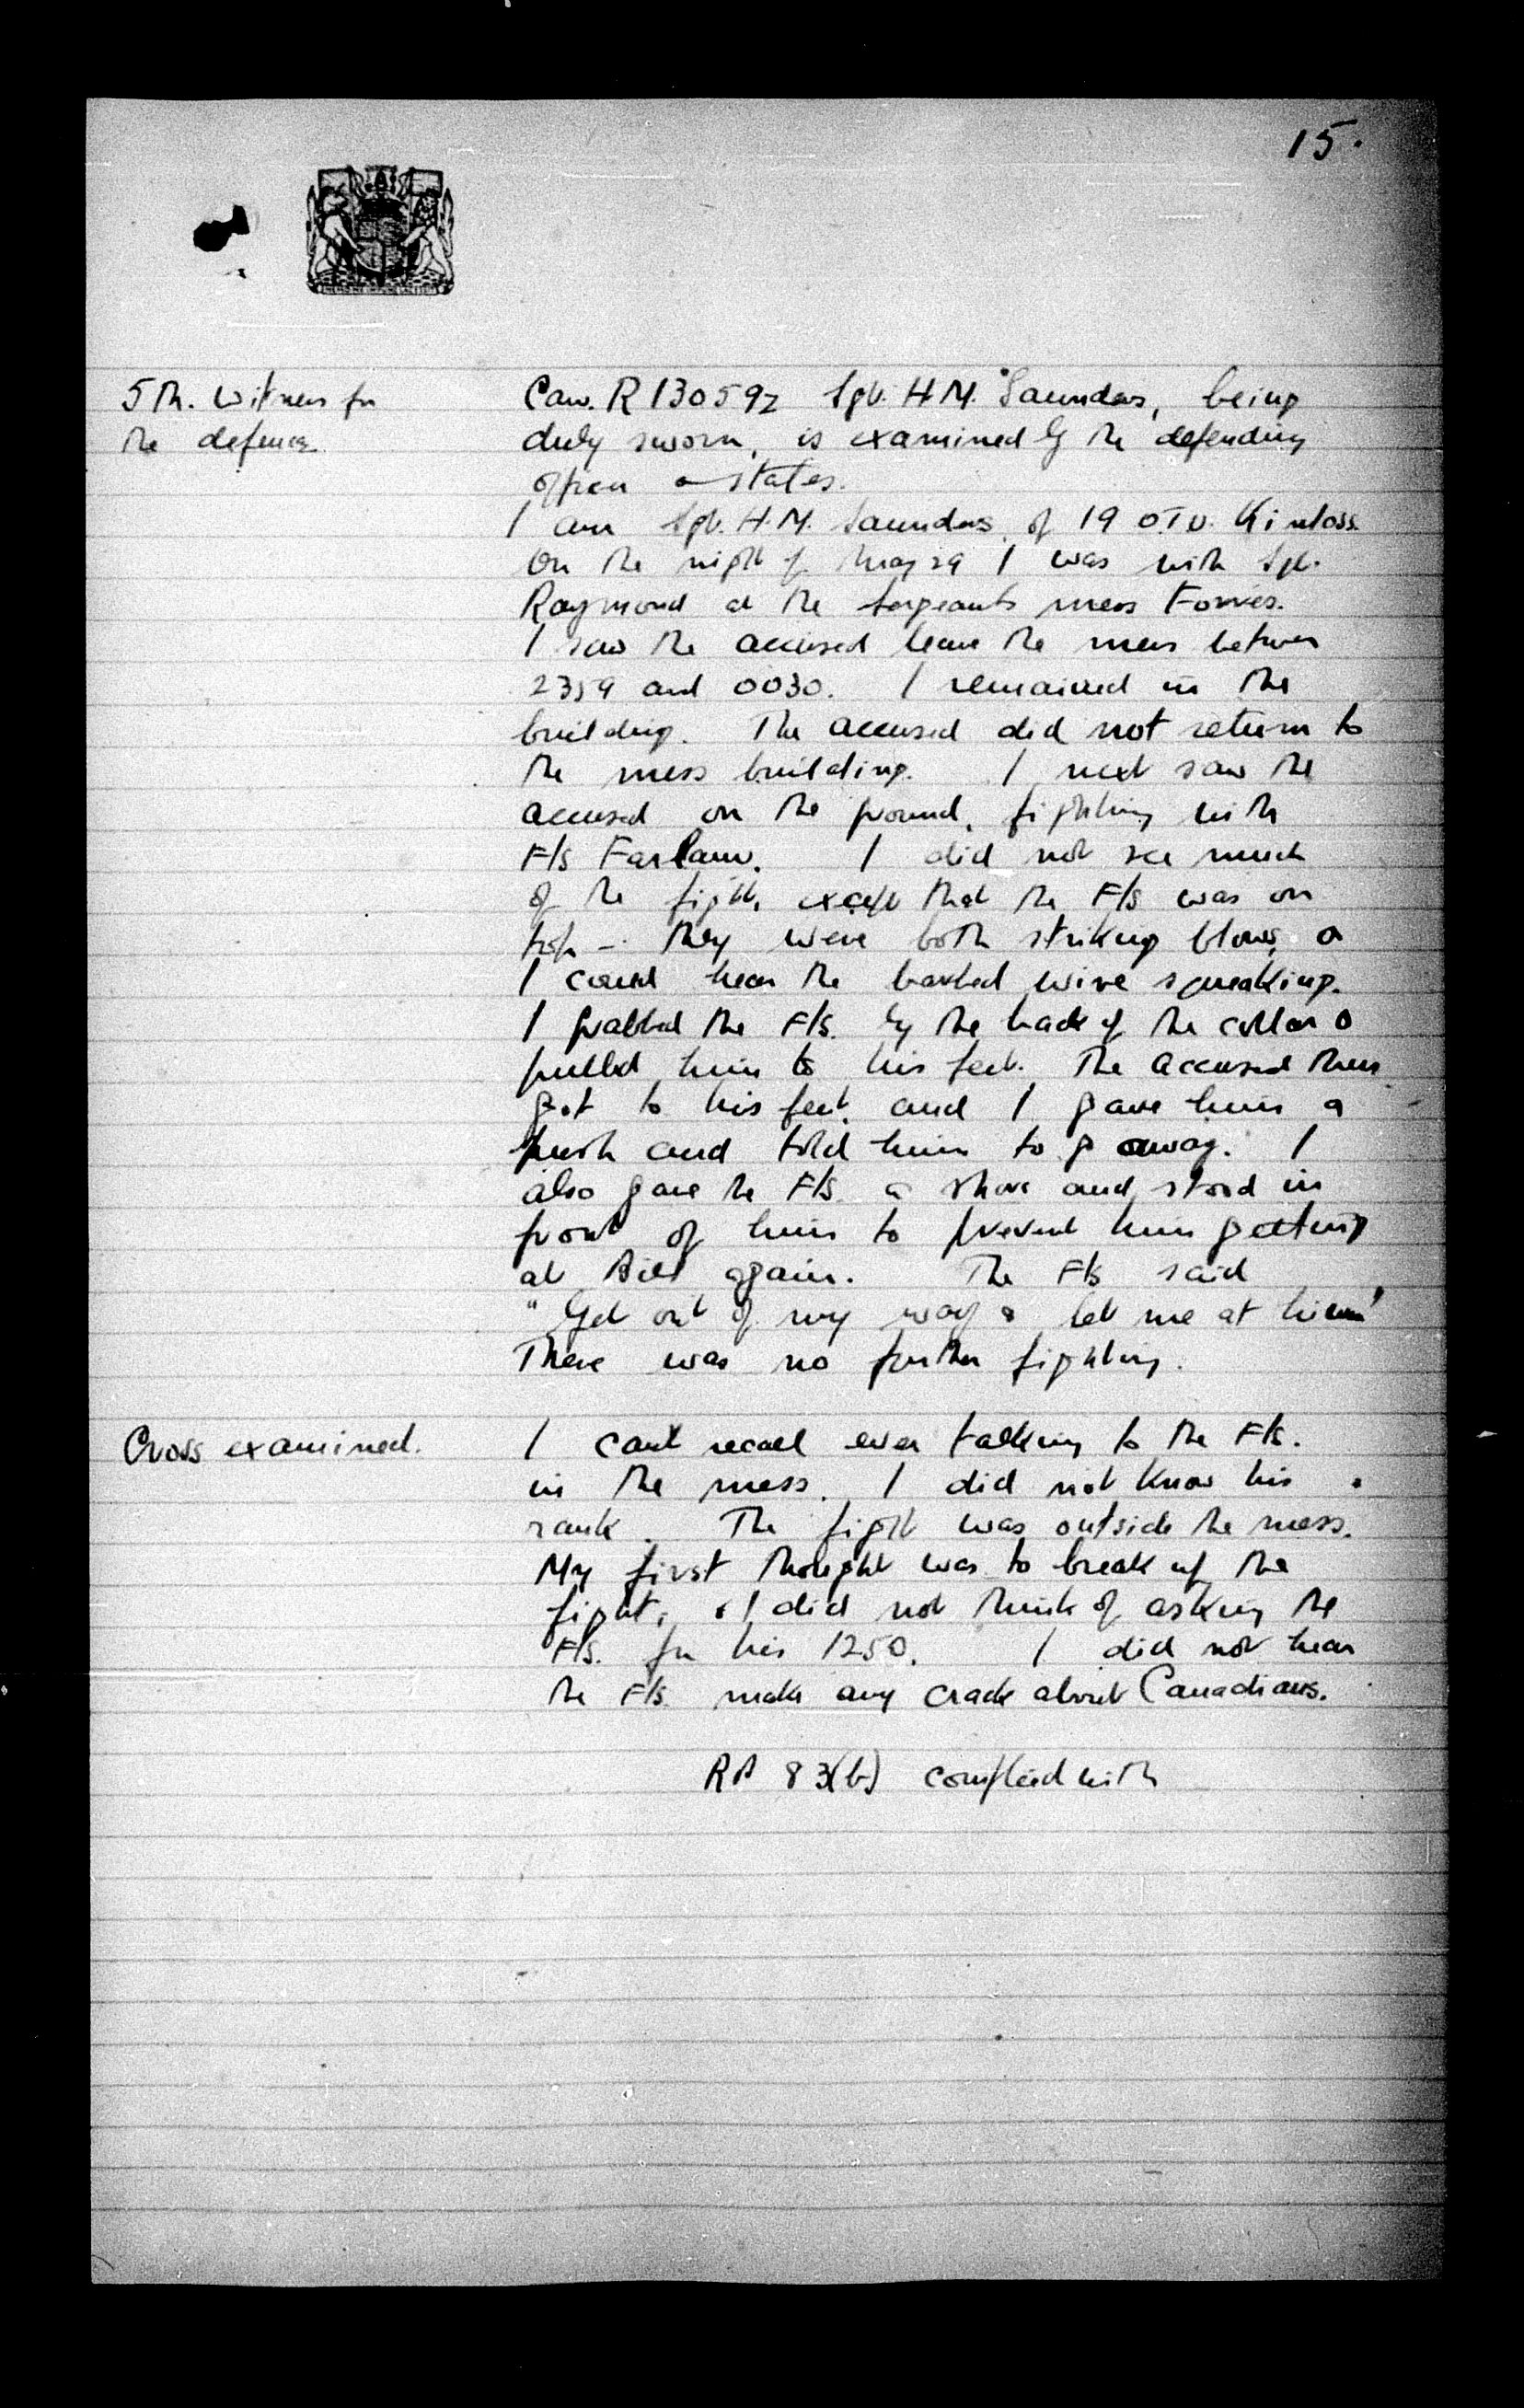 15.
5th. Witness for
the defence
Can. R 130592 Sgt. H.M. Saunders, being
duly sworn, is examined by the defending
officer & states.
I am Sgt. H.M. Saunders of 19 OTU. Kinloss.
On the night of May 29 I was with Sgt.
Raymond at the Sergeants mess Forres.
I saw the accused leave the mess between
2359 and 0030. I remained in the
building. The accused did not return to
the mess building. I next saw the
accused on the ground, fighting with
F/S Farlam. I did not see much
of the fight, except that the F/S was on
top – they were both striking blows, &
I could hear the barbed wire squeaking.
I grabbed the F/S. by the back of the collar &
pulled him to his feet. The accused then
got to his feet, and I gave him a
push and told him to go away. I
also gave the F/S. a shove and stood in
front of him to prevent him getting
at Bill again. The F/S said
"Get out of my way & let me at him"
There was no further fighting.
Cross examined.
I cant recall ever talking to the F/S.
in the mess. I did not know his
rank. The fight was outside the mess.
My first thought was to break up the
fight, & I did not think of asking the
F/S. for his 1250. I did not hear
the F/S. make any crack about Canadians.
RP 83(b) complied with